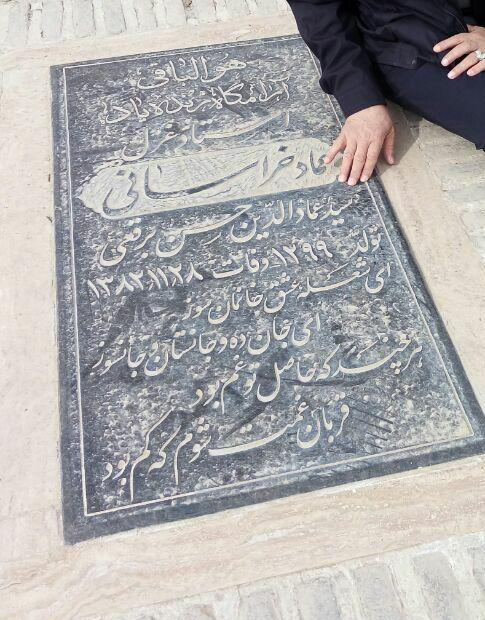 هوالباقی
آرامگاه زنده یاد
استاد غزل
عماد خراسانی
سید عمادالدین حسن برقعی
تولد ۱۲۹۹ وفات ۱۳۸۲،۱۱،۲۸
ای شعله عشق خانمان سوز
ای جان ده و جانستان و جانسوز
هر چند که حاصل تو غم بود
قربان غمت شوم که کم بود